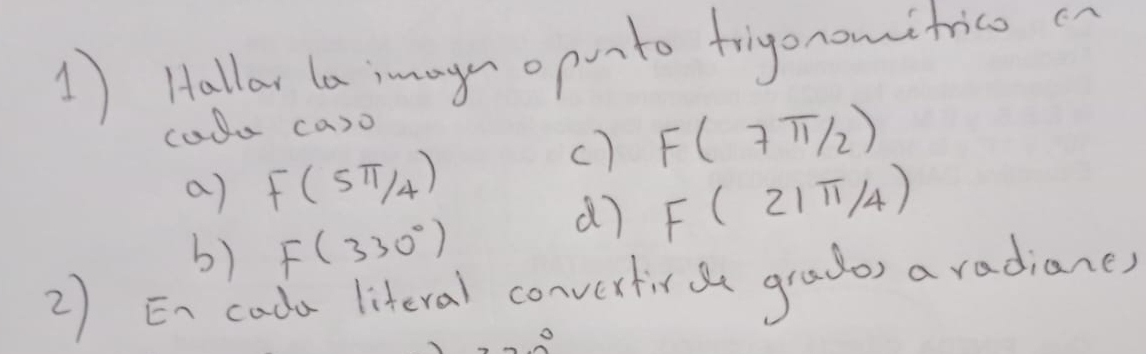 1) Hallar la imagen o punto trigonométrico en
cada caso
a) F(5π/4)
c) F(7π/2)
b) F(330°)
d) F(21π/4)
2) En cada literal convertir de grados a radianes